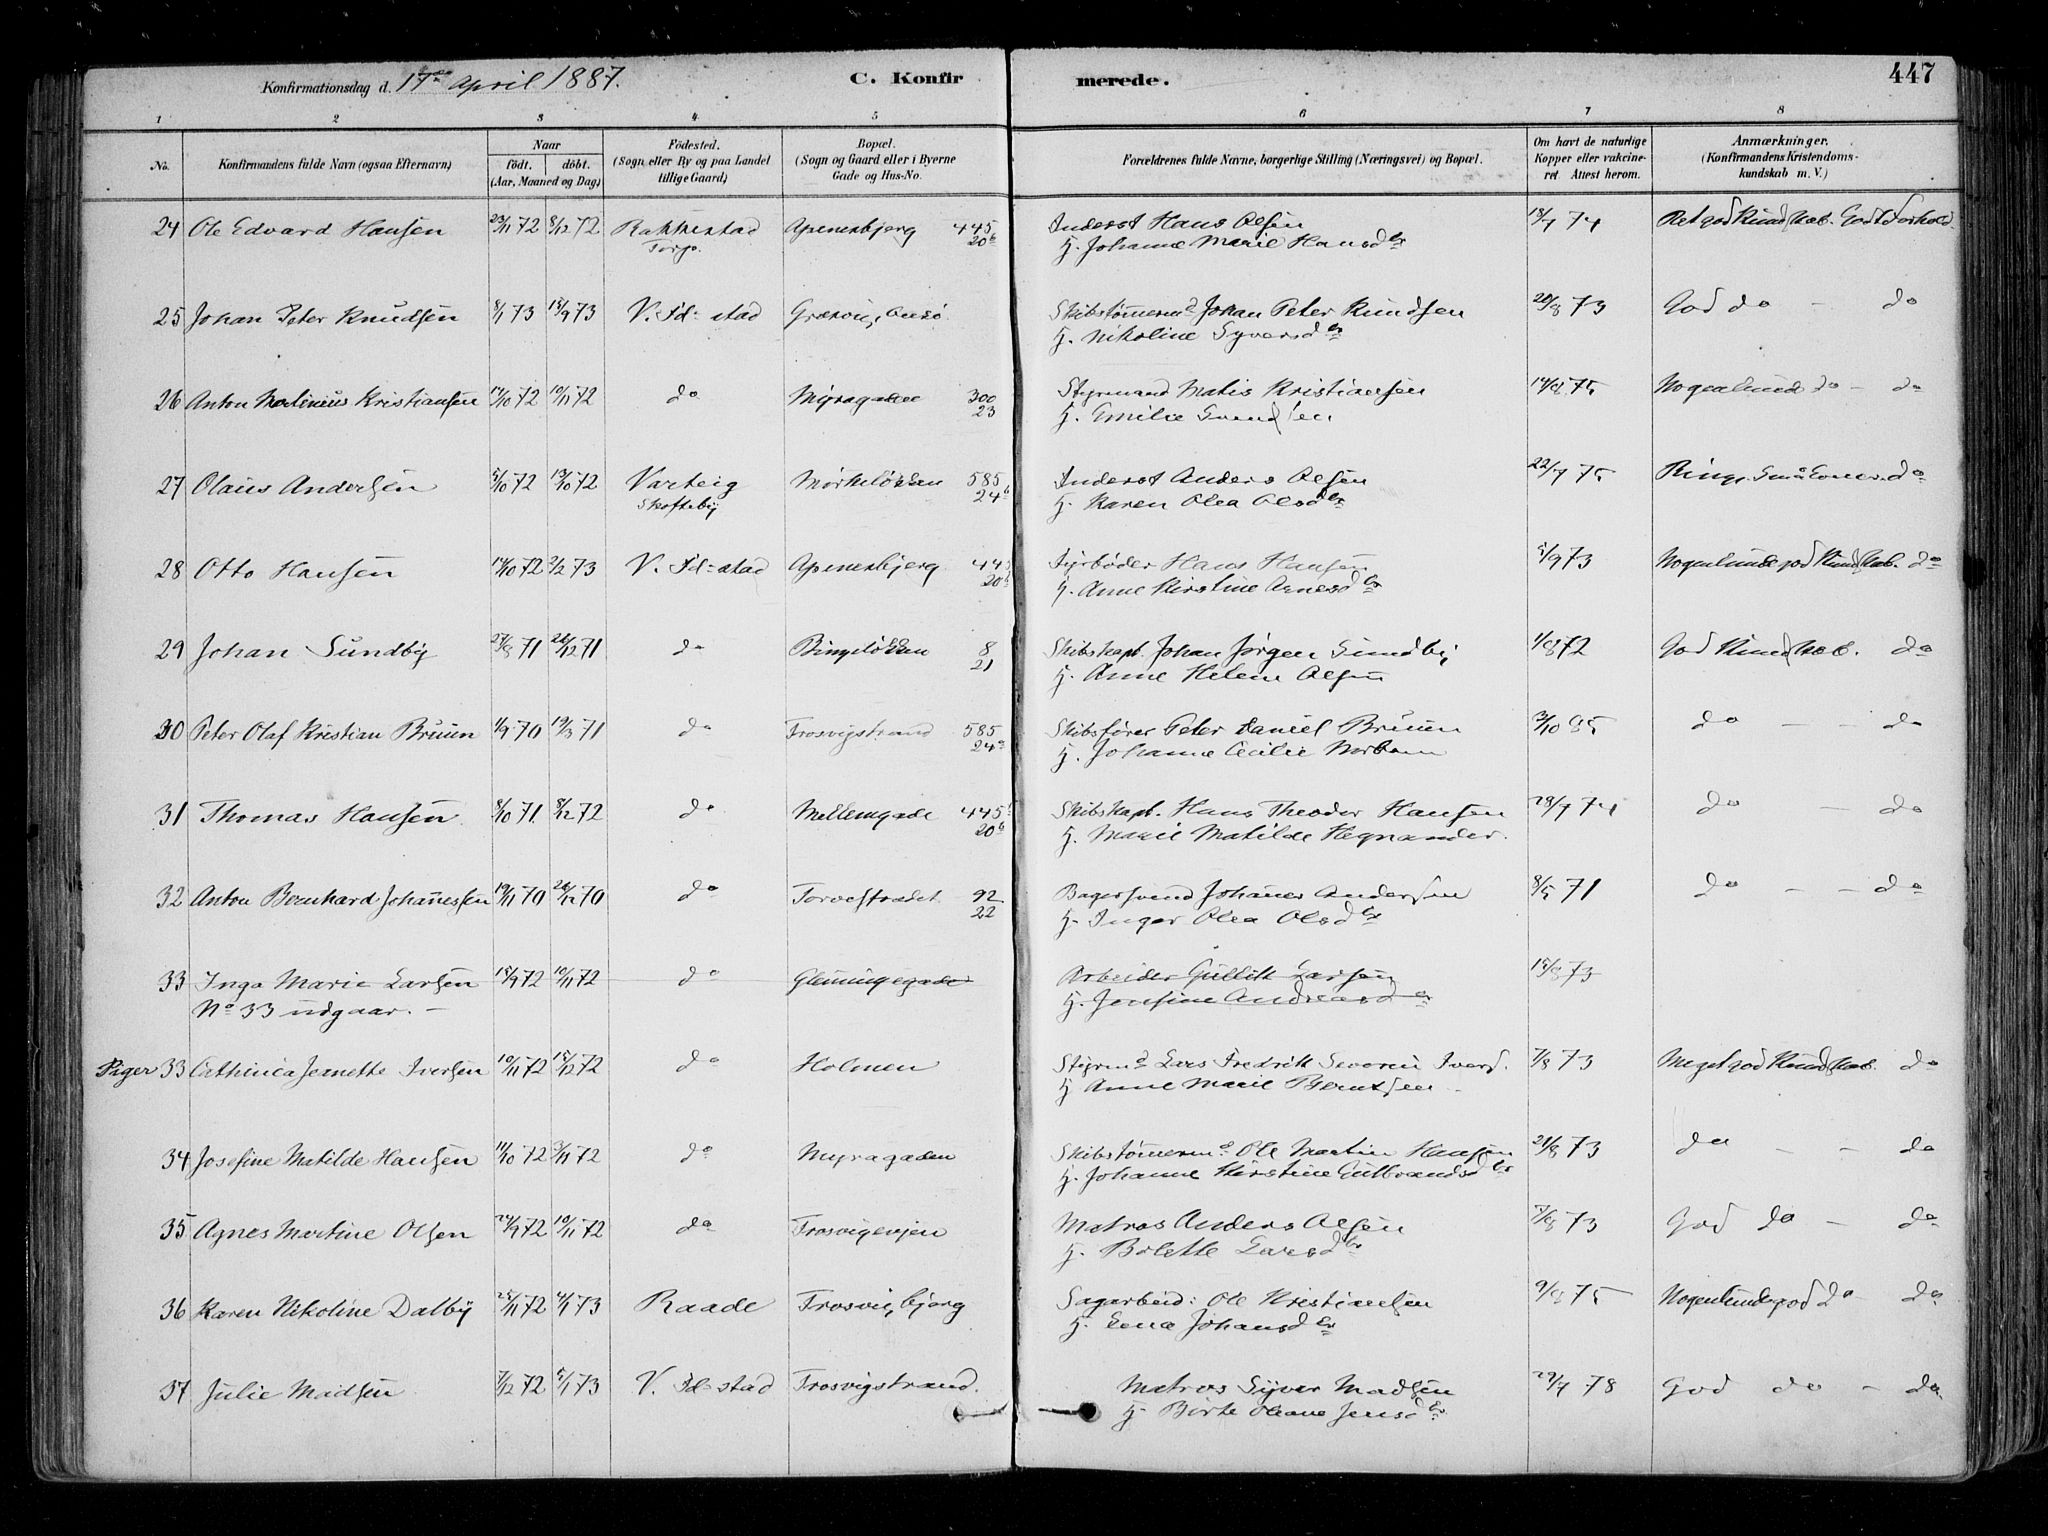 Konfirmationsdag d. 17de April 1887. C. Konfirmerede. 447
1 2 3 4 5 6 7 8
No. Konfirmandens fulde Navn (ogsaa Efternavn) Naar födt. döbt. (Aar, Maaned og Dag) Födested. (Sogn eller By og paa Landet tillige Gaard) Bopæl. (Sogn og Gaard eller i Byerne Gade og Hus-No. Forældrenes fulde Navne, borgerlige Stilling (Næringsvei) og Bopæl. Om havt de naturlige Kopper eller vakcineret Attest herom. Anmærkninger. (Konfirmandens Kristendomskundskab m. V.)
24 Ole Edvard Hansen 23/11 72 8/12 72 Rakkestad Apenesbjerg 445 Inderst Hans Olsen 18/7 74 Ret god Kundskab. Godt Forhold.
Torp. 20b H. Johanne Marie Hansdtr
25 Johan Peter Knudsen 8/1 73 13/9 73 V. Fd=stad Græsvig, Onsö Skibstömmermd Johan Peter Knudsen 20/8 73 God do - do
H. Nikoline Syversdtr
26 Anton Matinius Kristiansen 14/10 72 10/11 72 do Myragaden 300 Styrmand Matis Kristiansen 14/8 75 Nogenlund do - do
23 H. Emilie Svendsen
27 Olaus Andersen 5/10 72 13/10 72 Varteig Mörkelökken 585 Inderst Anders Olsen 22/7 75 do
Skofteby 24b H. Karen Olea Olsdtr
28 Otto Hansen 14/10 72 2/2 73 V. Fd=stad Apenesbjerg 445 Fyrböder Hans Hansen 5/9 73 Nogenlunde god Kundskab. do
20b H. Anne Kirstine Arnesdtr
29 Johan Sundby 27/8 71 26/12 71 do Bingelökken 8 Skibskapt. Johan Jörgen Sundby 1/8 72 God Kundskab. do
21 H. Anne Helene Olsen
30 Peter Olaf Kristian Bruun 1/9 70 19/3 71 do Trosvigstrand 585 Skibsförer Peter Daniel Bruun 3/10 85 do - - do
24a H. Johanne Cecilie Norbom
31 Thomas Hansen 8/10 71. 8/12 72 do Mellemgade 445 Skibskapt. Hans Theodor Hansen 28/7 74 do - do
20b H. Marie Matilde Hegnander.
32 Anton Bernhard Johannessen 19/11 70 26/12 70 do Torvestrædet 92 Bagersvend Johannes Andersen 8/5 71 do - - do
22 H. Inger Olea Olsdtr
33 Inga Marie Larsen 18/9 72 10/11 72 do Glemmingegade Arbeider Gullik Larsen 15/8 73
No 33 udgaar. - H. Josefine Andreasdtr
Piger 33 Cathinca Jeanette Iversen 10/11 72 15/12 72 do Holmen Styrmd Lars Fredrik Severin Ivers. 7/8 73 Meget god Kundskab. do
H. Anne Marie Berntsen
34 Josefine Matilde Hansen 11/10 72 3/11 72 do Myragaden Skibstömmermd Ole Martin Hansen 21/8 73 do - - do
H. Johanne Kirstine Gulbrandsdtr
35 Agnes Martine Olsen 24/9 72 10/11 72 do Trosvigveien Matros Anders Olsen 7/8 73 God do - do
H. Bolette Larsdtr
36 Karen Nikoline Dalby 25/11 72 4/1 73 Raade Trosvigbjerg Sagarbeid: Ole Kristiansen 9/8 75 Nogenlunde god do - do
H. Lena Johansdtr
37 Julie Madsen 7/12 72 5/1 73 V. Fd=stad Trosvigstrand. Matros Syver Madsen 29/7 78 God do - do
H. Birte Oleane Jensdtr